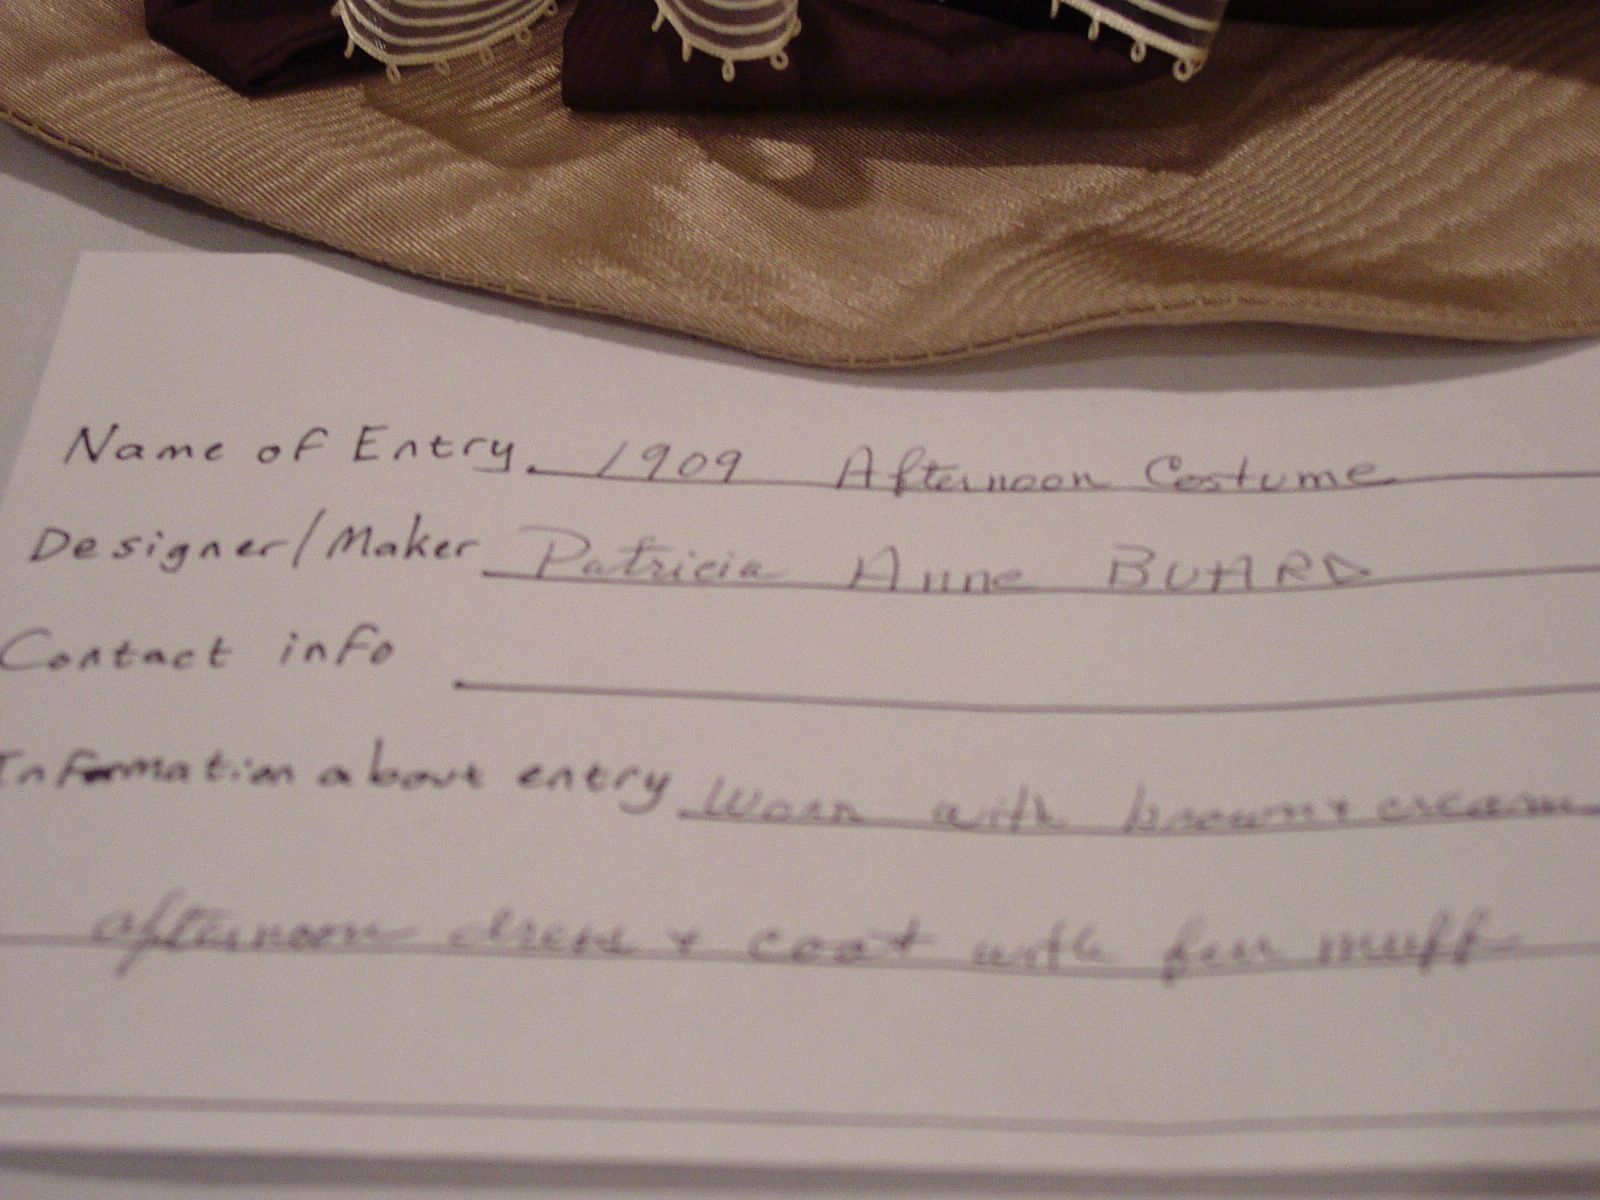 Name of Entry 1909 Afternoon Costume
Designer/Maker Patricia Anne BUARD
Contact info
Information about entry Worn with brown + cream
afternoon dress + coat with fur muff